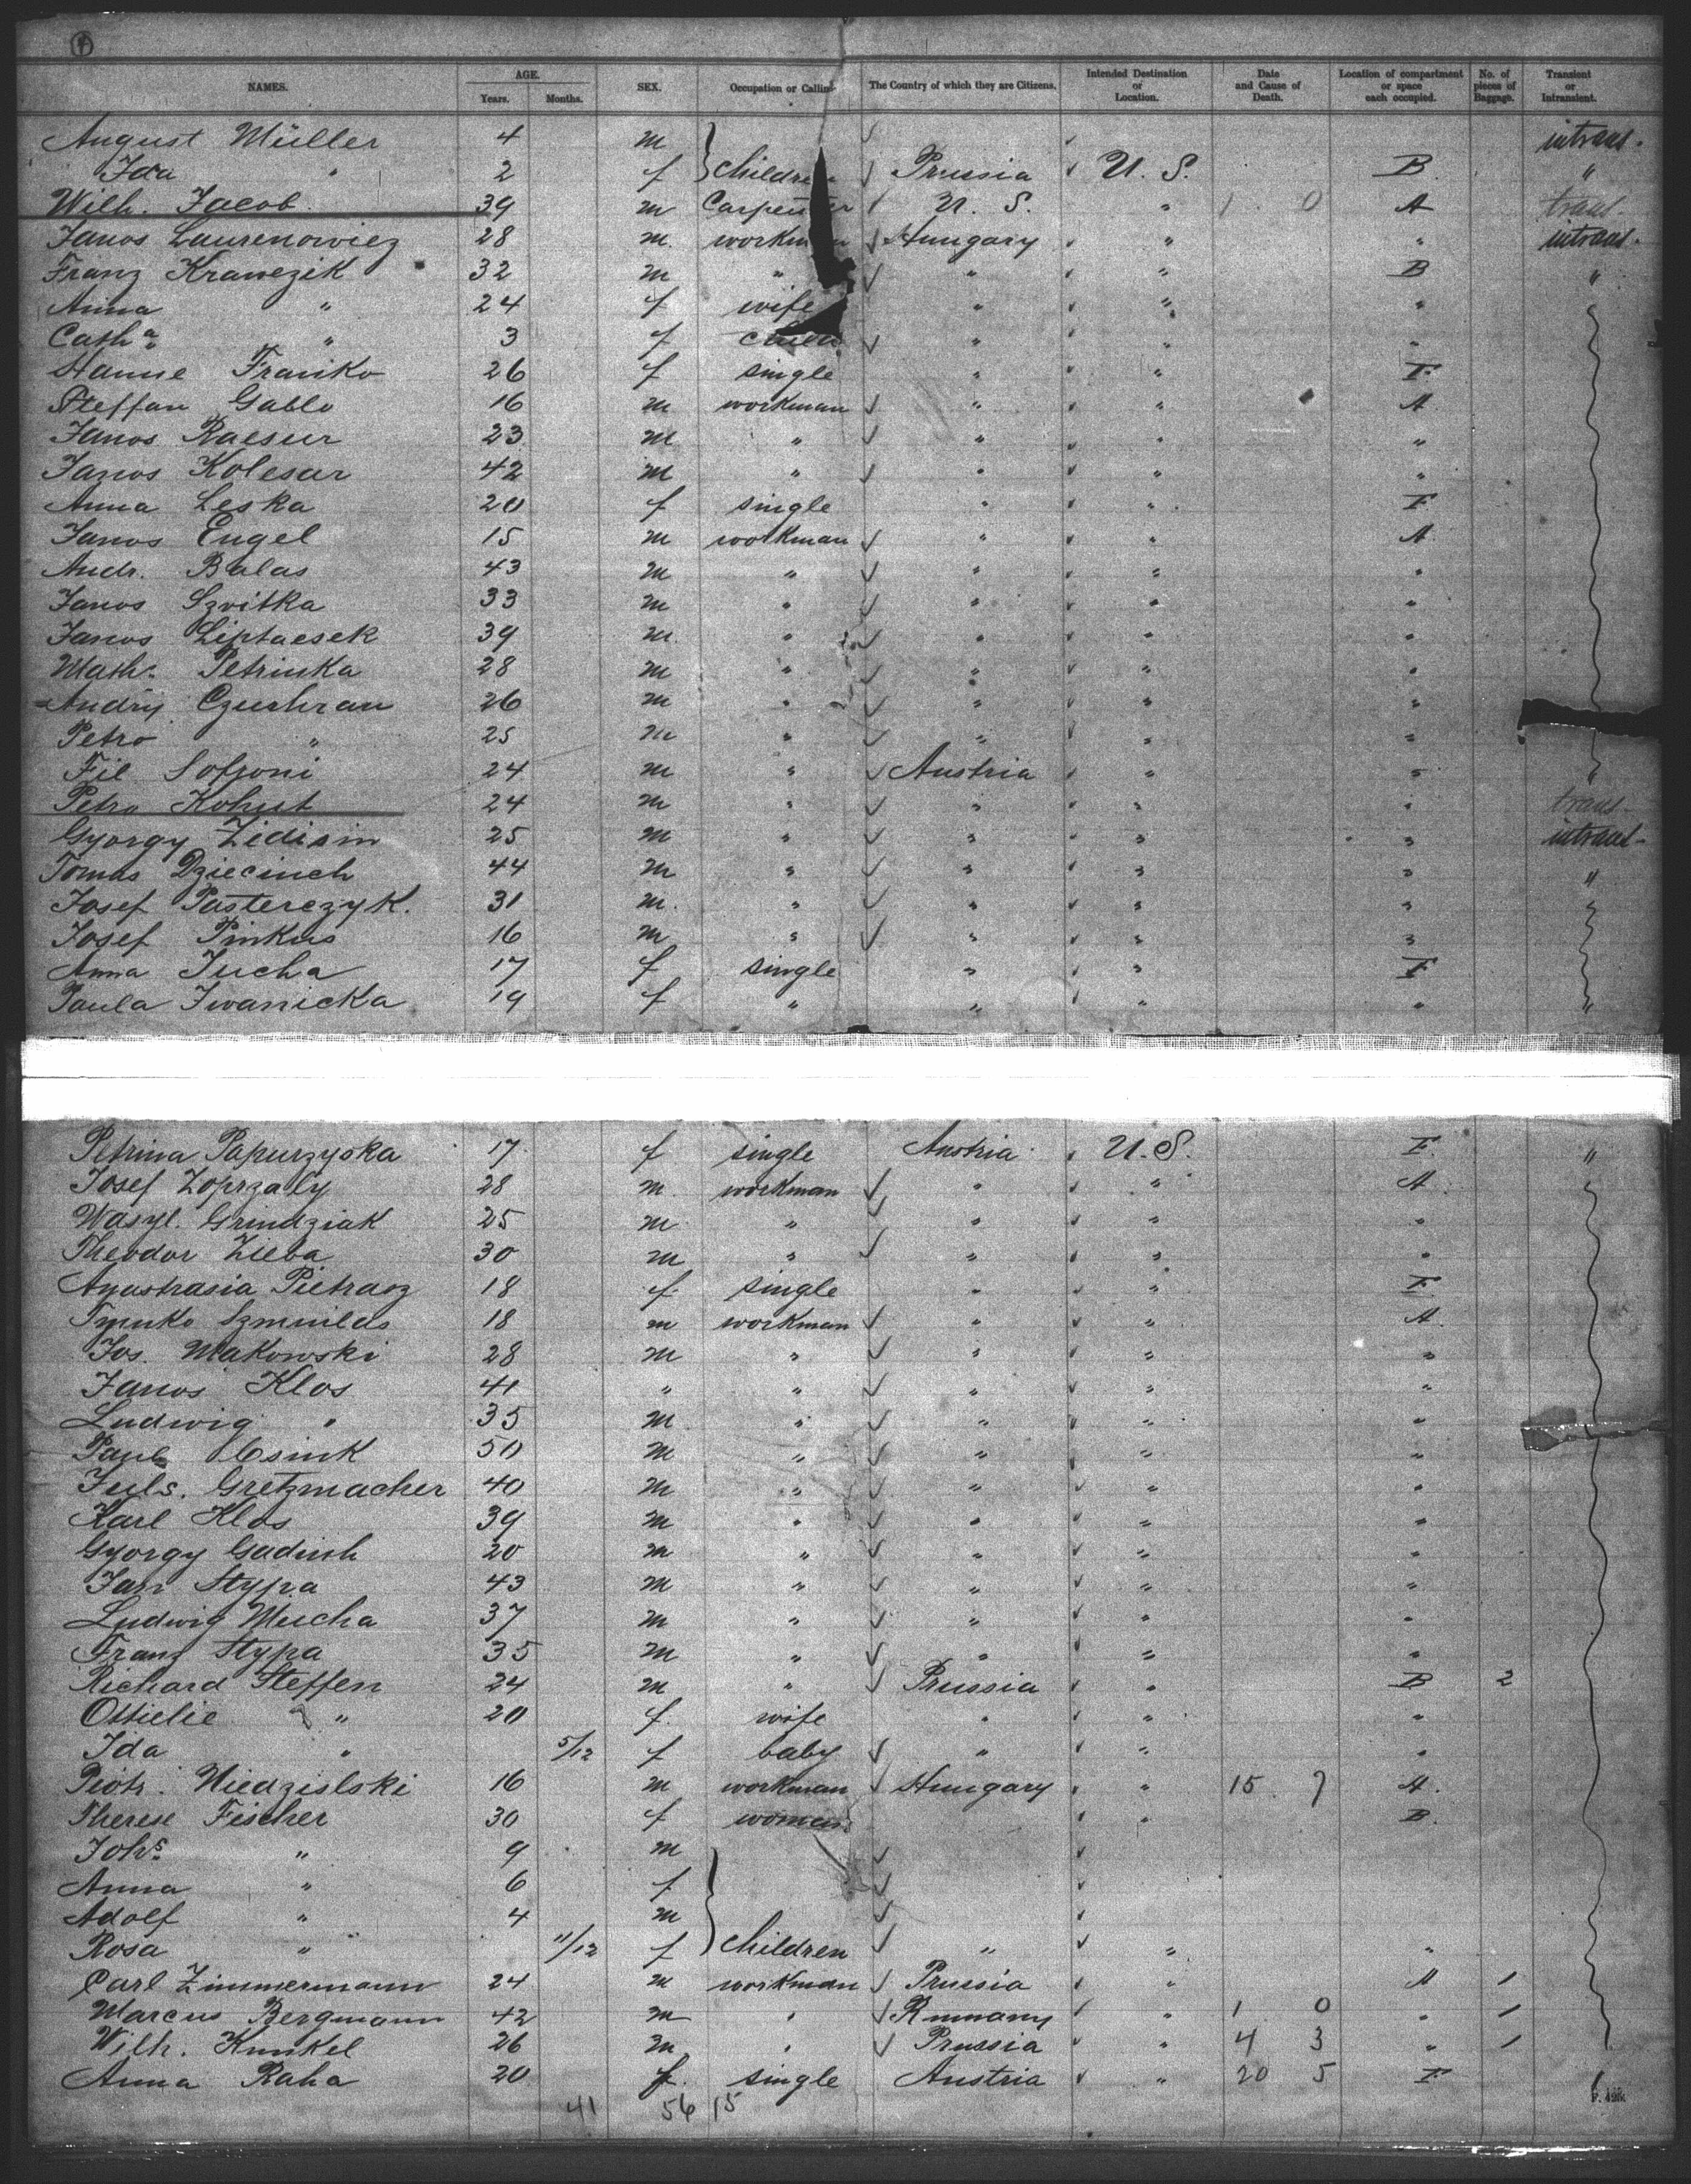 4
NAMES. AGE. Years. Months. SEX. Occupation or Calling. The Country of which they are Citizens. Intended Destination or Location. Date and Cause of Death. Location of compartment or space each occupied. No. of pieces of Baggage. Transient or Intransient.
August Müller 4 m intrans.
Ida " 2 f children Prussia U. S. B "
Wilh. Jacob 39 m Carpenter U. S. " 1 0 A trans.
Janos Laurenowicz 28 m. workman Hungary " " intrans.
Franz Krawczik 32 m " " " B "
Anna " 24 f wife " " "
Catha " 3 f child " " "
Hanne Franko 26 f single " " F
Steffan Gablo 16 m workman " " A
Janos Racsur 23 m " " " "
Janos Kolesar 42 m " " " "
Anna Leska 20 f single " " F
Janos Engel 15 m workman " " A
Andr. Balas 43 m " " " "
Janos Szvitka 33 m " " " "
Janos Liptacsek 39 m. " " " "
Maths. Petrinka 28 m " " " "
Andrij Czurhran 26 m " " " "
Petro " 25 m " " " "
Fil Sofroni 24 m " Austria " " "
Petro Kohut 24 m " " " " trans.
Gyorgy Zidisin 25 m " " " " intrans.
Tomas Dziecinch 44 m " " " " "
Josef Pasterczyk. 31 m. " " " " "
Josef Pinkus 16 m " " " "
Anna Jucha 17 f single " " F
Paula Iwanicka 19 f " " " " "
Petrina Papurzyska 17 f single Austria U. S. F. "
Josef Zoprzaly 28 m. workman " " A
Wasyl. Grindziak 25 m " " " "
Theodor Zieba 30 m " " " "
Anastrasia Pietrasz 18 f single " " F
Tymko 18 m workman " " A.
Jos. Makowski 28 m " " " "
Janos Klos 41 " " " " "
Ludwig " 35 m " " " "
Paul Csink 50 m " " " "
Juls. Gretzmacher 40 m " " " "
Karl Klos 39 m " " " "
Gyorgy Gaduch 20 m " " " "
Jan Stypa 43 m " " " "
Ludwig Mucha 37 m " " " "
Franz Stypa 35 m " " " "
Richard Steffen 24 m " Prussia " B 2
Ottielie " 20 f. wife " " "
Ida " 5/12 f baby " " "
Piotr. Niedzislski 16 m workman Hungary " 15 7 A.
Therese Fischer 30 f woman " B.
Johs. " 9 m
Anna " 6 f
Adolf " 4 m
Rosa " 11/12 f children " " "
Carl Zimmermann 24 m workman Prussia " A 1
Marcus Bergmann 42 m " Rumany " 1 0 " 1
Wilh. Kunkel 26 m " Prussia " 4 3 " 1
Anna Raha 20 f. single Austria " 20 5 F
41 56 15